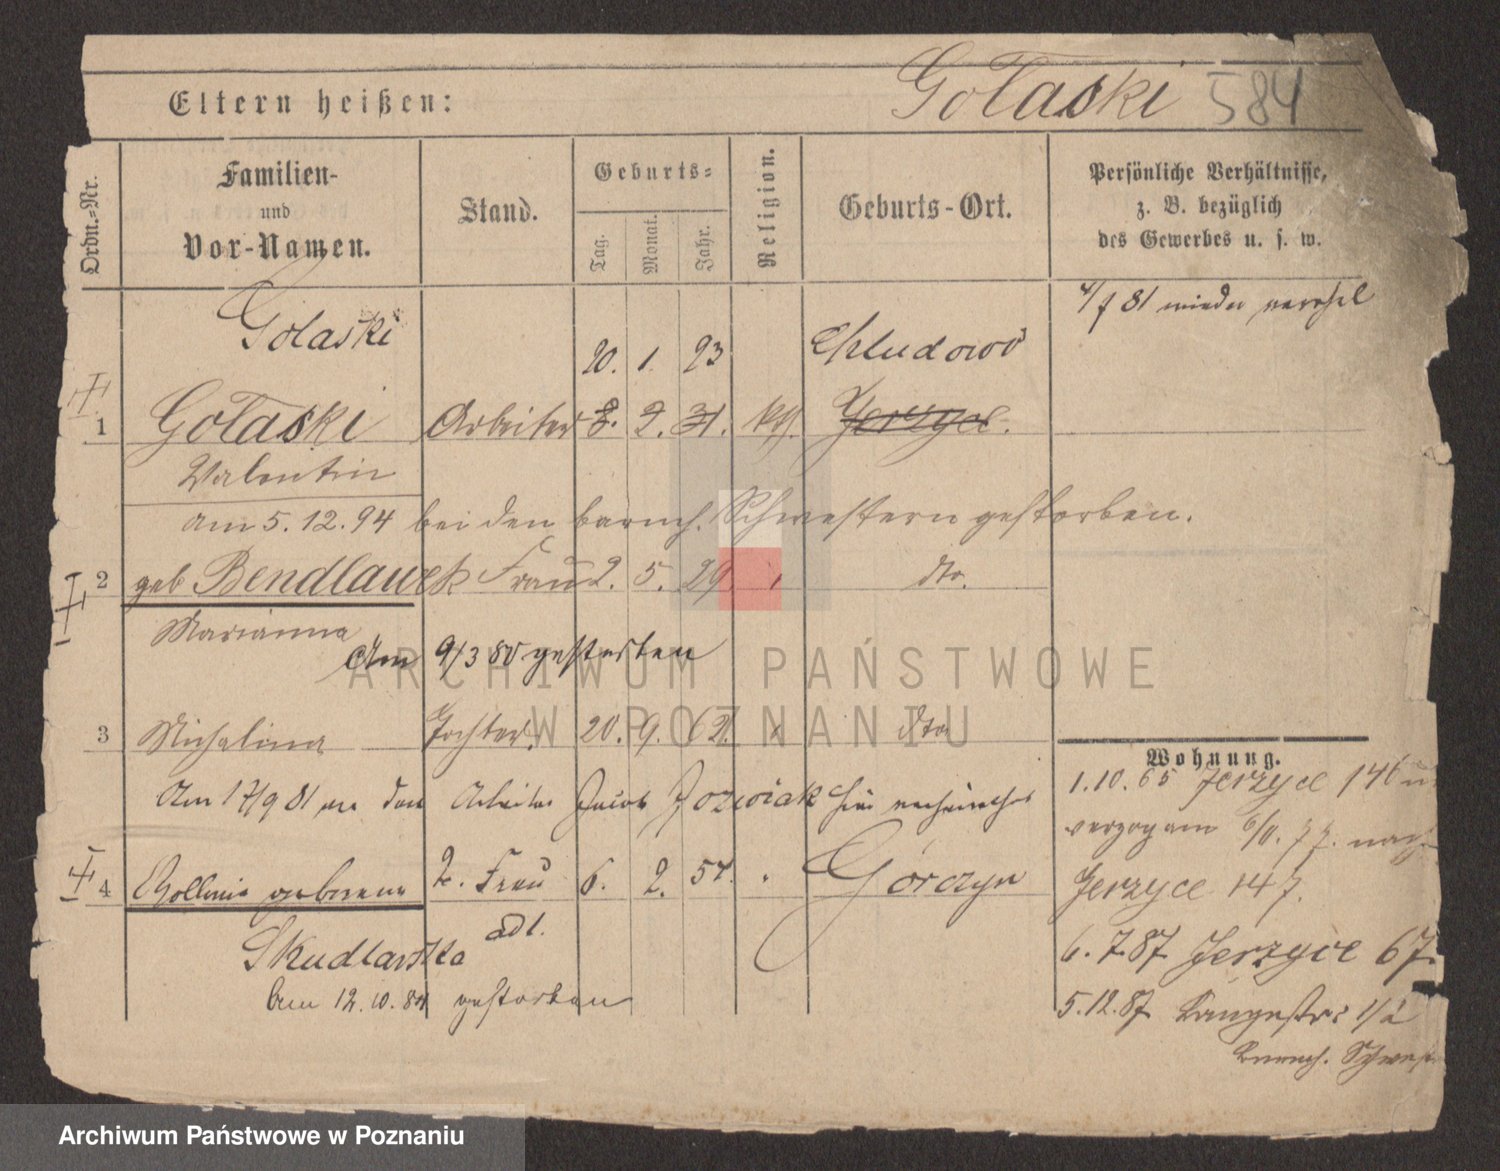 Gołaski 584
Eltern heißen:
Ordn.-Nr.
Familien-
und
Vor-Namen.
Stand.
Geburts-
Tag. Monat. Jahr.
Religion.
Geburts-Ort.
Persönliche Verhältnisse,
z. B. bezüglich
des Gewerbes u. s. w.
81 wieder
Golaski
20. 1. 23 Chludowo
1 Gołaski Arbeiter 8. 2. 31. kth. Jerzyce.
Valentin
am 5. 12. 94 bei den barmh. Schwestern gestorben.
2 geb Bendlawek Frau 2. 5. 29. dto.
Marianna
Am 9/3 80 gestorben
3 Michalina Tochter. 20. 9. 62. dto
Am 17/9 81 an den Arbeiter Jacob Jozwiak hier
4 Apollonia geborene 2. Frau 6. 2. 57. Górczyn
Skudlarska adl.
Am 12. 10. 84 gestorben
Wohnung.
1. 10. 65 Jerzyce 146
verzog am 6/11. 77. nach
Jerzyce 147.
6. 7. 87 Jerzyce 67.
5. 12. 87 Langestr: 1/2
Barmh. Schwest
ARCHIWUM PAŃSTWOWE
W POZNANIU
Archiwum Państwowe w Poznaniu